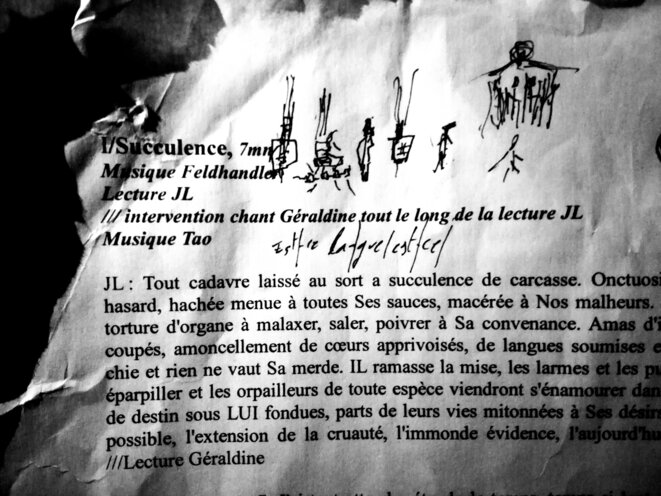 I/Succulence, 7mn
Musique Feldhandler
Lecture JL
/// intervention chant Géraldine tout le long de la lecture JL
Musique Tao
JL : Tout cadavre laissé au sort a succulence de carcasse. Onctuosi
hasard, hachée menue à toutes Ses sauces, macérée à Nos malheurs.
torture d'organe à malaxer, saler, poivrer à Sa convenance. Amas d'i
coupés, amoncellement de cœurs apprivoisés, de langues soumises e
chie et rien ne vaut Sa merde. IL ramasse la mise, les larmes et les pu
éparpiller et les orpailleurs de toute espèce viendront s'énamourer dan
de destin sous LUI fondues, parts de leurs vies mitonnées à Ses désirs
possible, l'extension de la cruauté, l'immonde évidence, l'aujourd'hu
///Lecture Géraldine